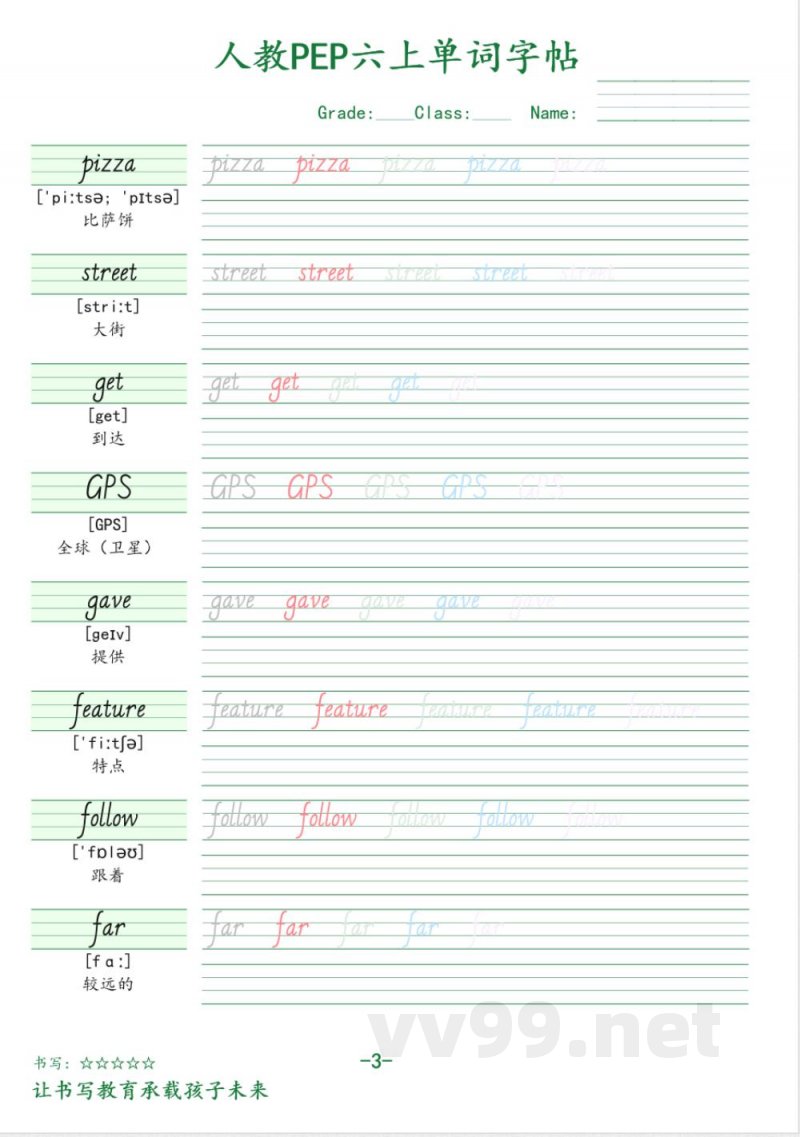 人教PEP六上单词字帖
Grade:____Class:____ Name:
pizza pizza pizza pizza pizza pizza
[ˈpiːtsə; ˈpɪtsə]
比萨饼
street street street street street street
[striːt]
大街
get get get get get get
[get]
到达
GPS GPS GPS GPS GPS GPS
[GPS]
全球（卫星）
gave gave gave gave gave gave
[geɪv]
提供
feature feature feature feature feature feature
[ˈfiːtʃə]
特点
follow follow follow follow follow follow
[ˈfɒləʊ]
跟着
far far far far far far
[fɑː]
较远的
vv99.net
书写：☆☆☆☆☆
-3-
让书写教育承载孩子未来